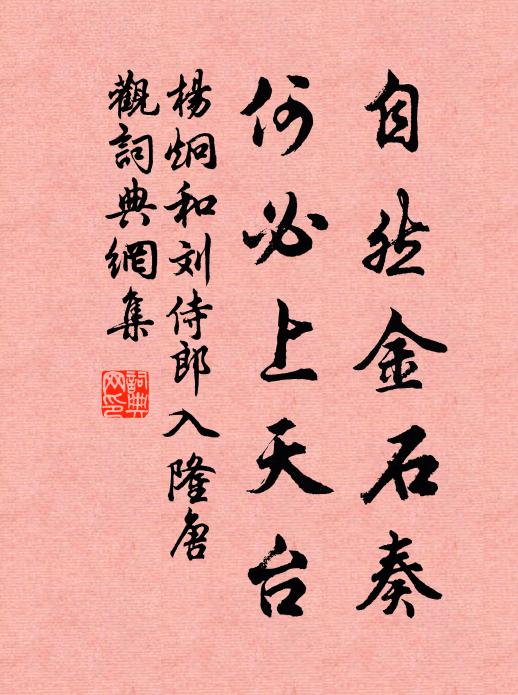 自然金石奏
何必上天台
楊炯和刘侍郎入隆唐
觀詞典網集
詞典
网印